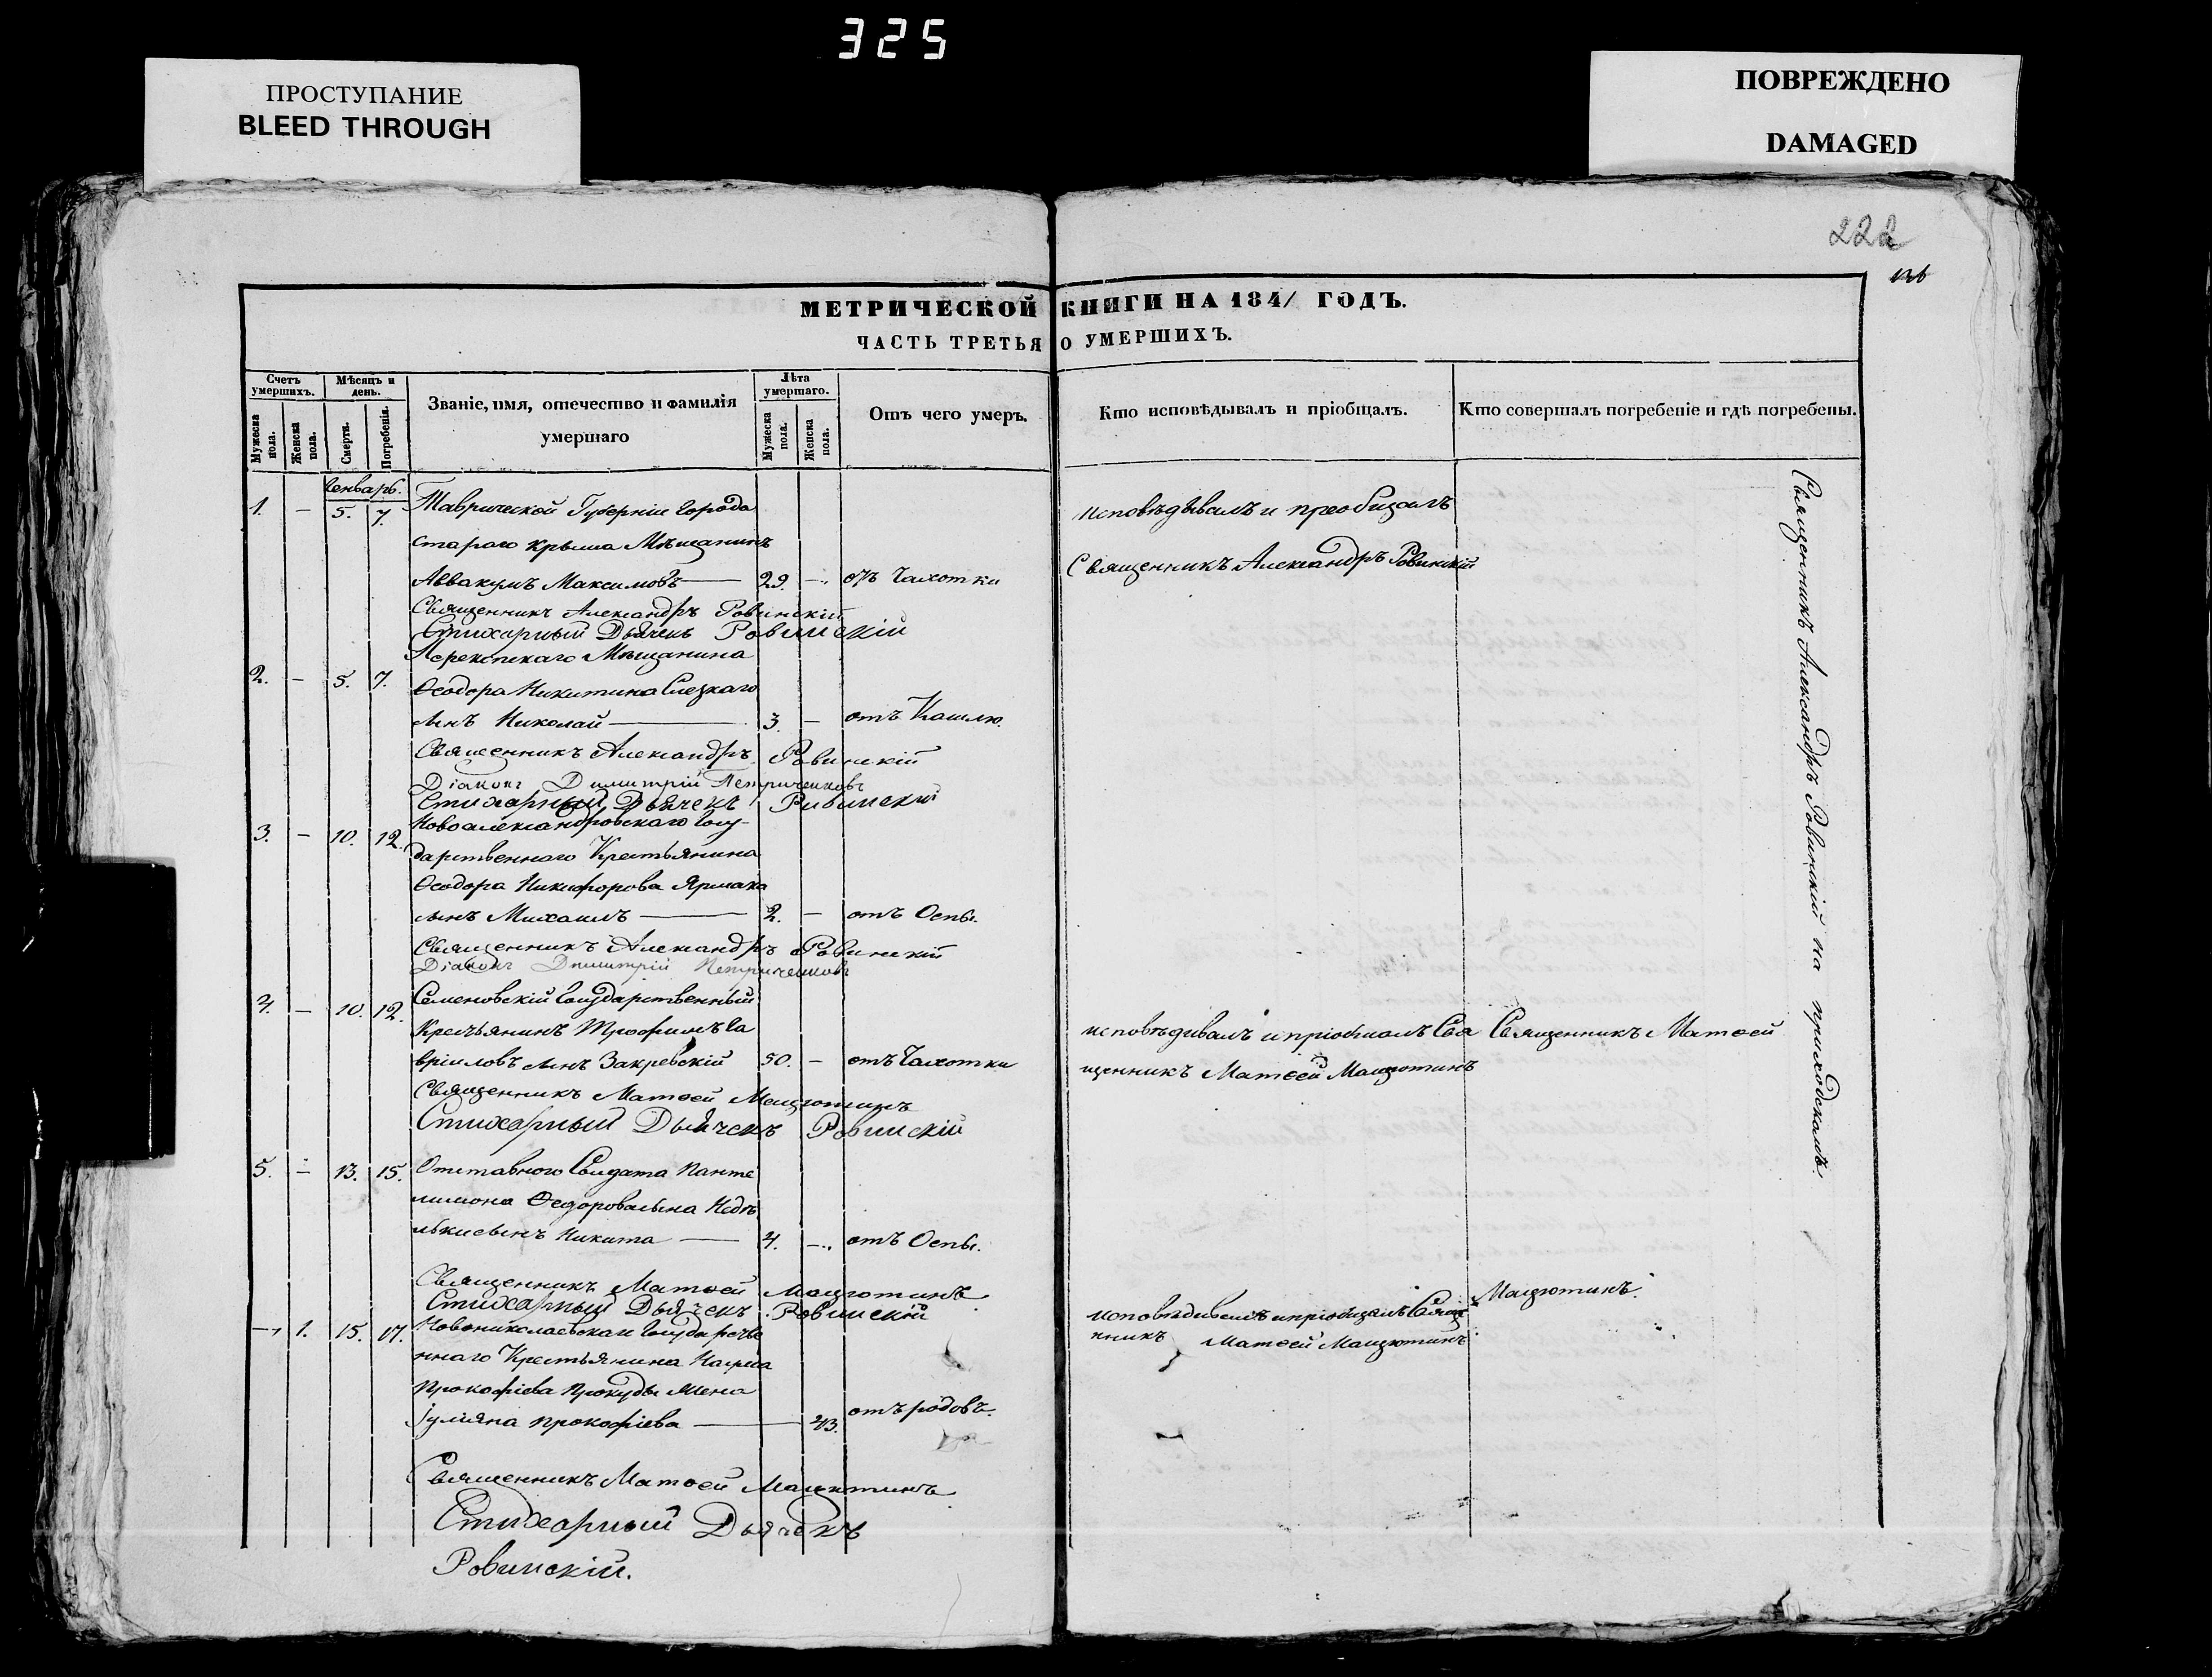 325
ПРОСТУПАНИЕ
BLEED THROUGH
ПОВРЕЖДЕНО
DAMAGED
222
МЕТРИЧЕСКОЙ КНИГИ НА 1841 ГОДЪ.
ЧАСТЬ ТРЕТЬЯ О УМЕРШИХЪ.
Счетъ умершихъ.
Мужеска пола.
Женска пола.
Мѣсяцъ и день.
Смерти.
Погребенія.
Званіе, имя, отечество и фамилія
умершаго
Лѣта умершаго.
Мужеска пола.
Женска пола.
Отъ чего умеръ.
Кто исповѣдывалъ и пріобщалъ.
Кто совершалъ погребеніе и гдѣ погребены.
Генварь.
1. — 5. 7. Таврической Губерніи города исповѣдывалъ и преобщалъ
стараго крыма Мѣщанинъ
Аввакумъ Максимовъ — 29. — отъ Чахотки Священникъ Александръ Ровинскій
Священникъ Александръ Ровинскій
Стихарный Дьячекъ Ровинскій
Перекопскаго Мѣщанина
2. — 5. 7. Ѳеодора Никитина
сынъ Николай — 3. — отъ Кашлю.
Священникъ Александръ Ровинскій
Діаконъ Димитрій Петриченковъ
Стихарный Дьячекъ Ровинскій
3. — 10. 12. Новоалександровскаго Госу-
дарственнаго Крестьянина
Ѳеодора Никифорова Ярмака
сынъ Михаилъ — 2. — отъ Оспы.
Священникъ Александръ Ровинскій
Діаконъ Димитрій Петриченковъ
4. — 10. 12. Семеновскій Государственный
Крестьянинъ Трофимъ Га исповѣдивалъ и пріобщалъ Свя Священникъ Матѳей
вріиловъ сынъ Закревскій 50. — отъ Чахотки щенникъ Матѳей Мацютинъ
Священникъ Матѳей Мацютинъ
Стихарный Дьячекъ Ровинскій
5. — 13. 15. Отставного Солдата Панте
лимона Ѳеодорова сына
сынъ Никита — 4. — отъ Оспы.
Священникъ Матѳей Мацютинъ Мацютинъ.
Стихарный Дьячекъ Ровинскій исповѣдивалъ и пріобщалъ Свяще
— 1. 15. 17. нникъ Матѳей Мацютинъ
ннаго Крестьянина Наума
Прокофіева Прокуды жена
Іуліяна Прокофіева — отъ родовъ.
Священникъ Матѳей Мацютинъ
Стихарный Дьячекъ
Ровинскій.
Священникъ Александръ Ровинскій на приходскомъ.